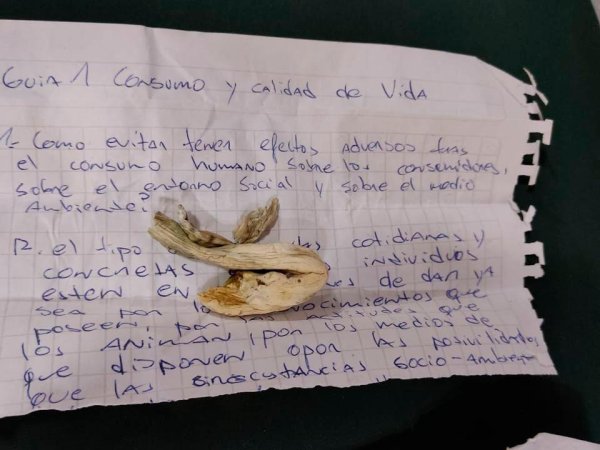 Guia 1 Consumo y calidad de vida
1- Como evitar tener efectos adversos tras
el consumo humano sobre los consumidores,
sobre el entorno social y sobre el medio
Ambiente?
R. el tipo cotidianas y
concretas individuos
esten en de dar ya
sea por conocimientos que
poseen, por que
los Animan, por los medios de
que disponen opor las posivilidades
que las sircustancias socio-Ambien